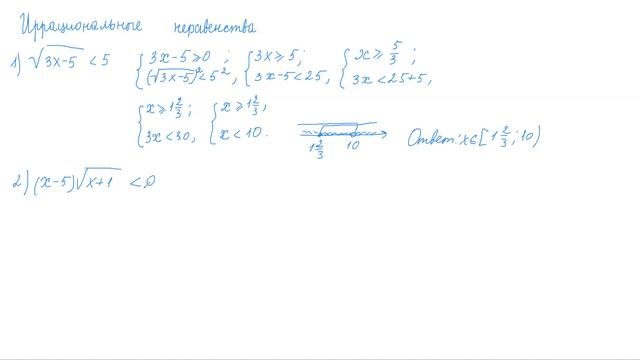 Иррациональные неравенства.
1) √(3x-5) < 5 { 3x-5≥0 ; { 3x≥5; { x≥ 5/3 ;
(√(3x-5))² < 5², 3x-5<25, 3x<25+5,
{ x≥1 2/3 ; { x≥1 2/3 ,
3x<30, x<10. 1 2/3 10 Ответ: x∈[1 2/3 ; 10)
2) (x-5)√(x+1) < 0